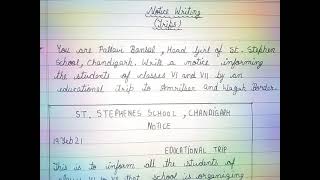 Notice Writing
(Trips)
You are Pallavi Bansal, Head Girl of St. Stephen
School, Chandigarh. Write a notice informing
the students of classes VI and VII by an
educational trip to Amritsar and Wagah Border.
ST. STEPHENES SCHOOL, CHANDIGARH
NOTICE
19 Feb 21
EDUCATIONAL TRIP
This is to inform all the students of
VI to VII that school is organizing